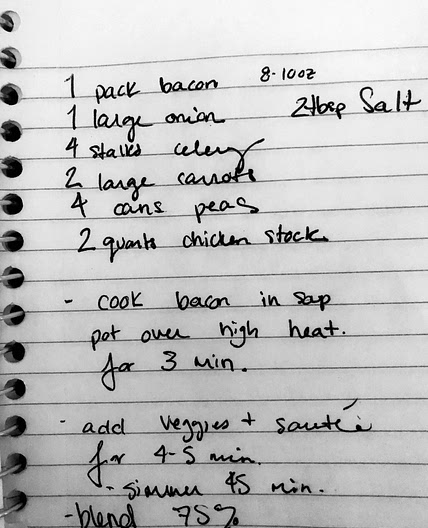 1 pack bacon 8-10oz
1 large onion 2tbsp Salt
4 stalks celery
2 large carrots
4 cans peas
2 quarts chicken stock
- cook bacon in sap
pot over high heat.
for 3 min.
- add veggies + sauté
for 4-5 min.
- simmer 45 min.
- blend 75%